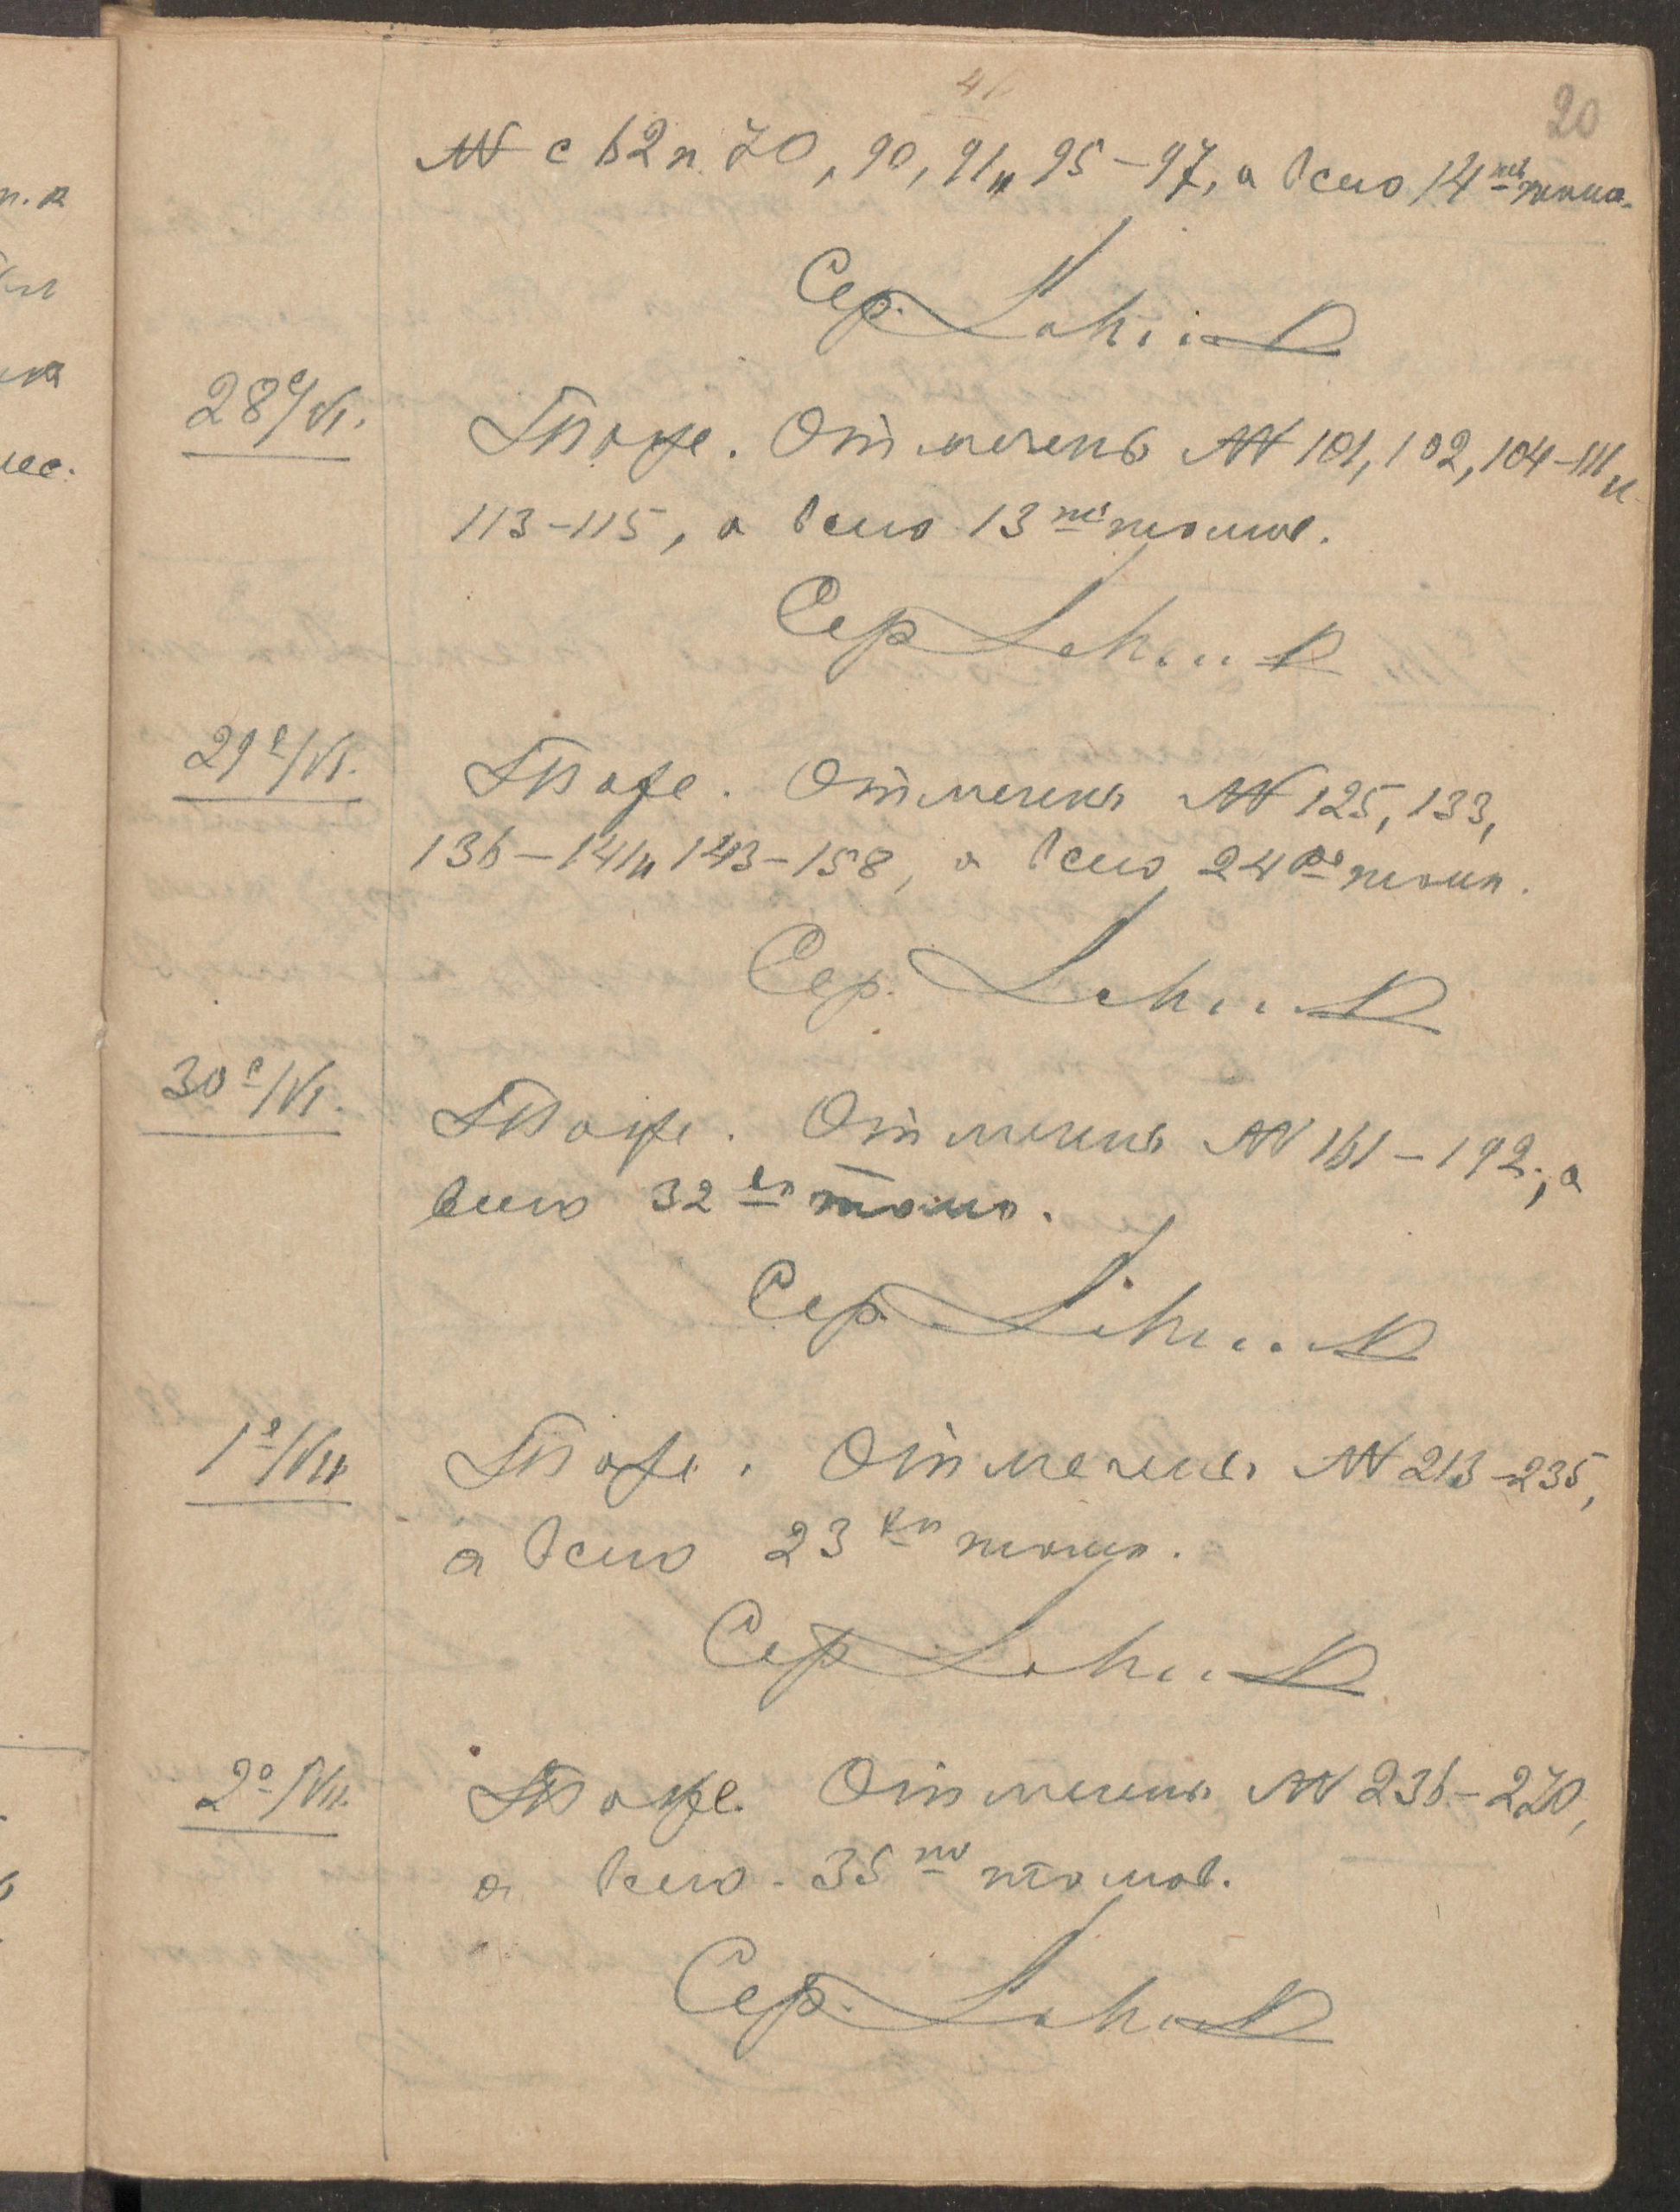 41
20
№№ с 62 п. 70, 90, 91 и 95–97, а всего 14ть томов.
Сер.
28е/VI.
Тоже. Отмечены №№ 101, 102, 104–111 и
113–115, а всего 13ть томов.
Сер
29е/VI.
Тоже. Отмечены №№ 125, 133,
136–141 и 143–158, а всего 24ре тома.
Сер.
30е/VI.
Тоже. Отмечены №№ 161–192, а
всего 32ва тома.
Сер.
1е/VII
Тоже. Отмечены №№ 213–235,
а всего 23ри тома.
Сер
2е/VII.
Тоже. Отмечены №№ 236–270,
а всего 35ть томов.
Сер.